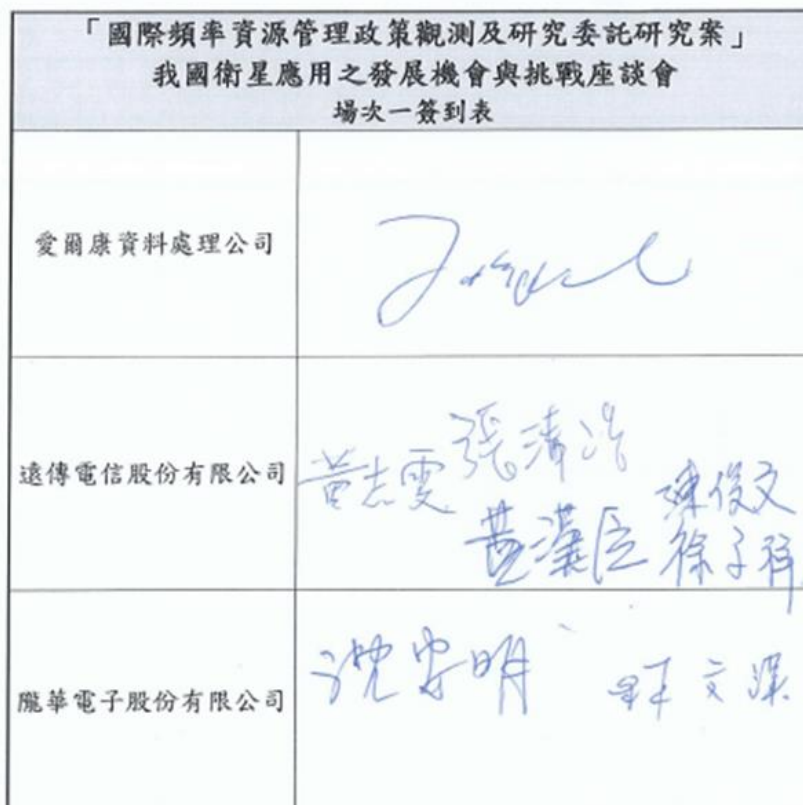 「國際頻率資源管理政策觀測及研究委託研究案」
我國衛星應用之發展機會與挑戰座談會
場次一簽到表
愛爾康資料處理公司
遠傳電信股份有限公司
張清浩
黃志雯
陳俊文
徐子祥
隴華電子股份有限公司
沈安明